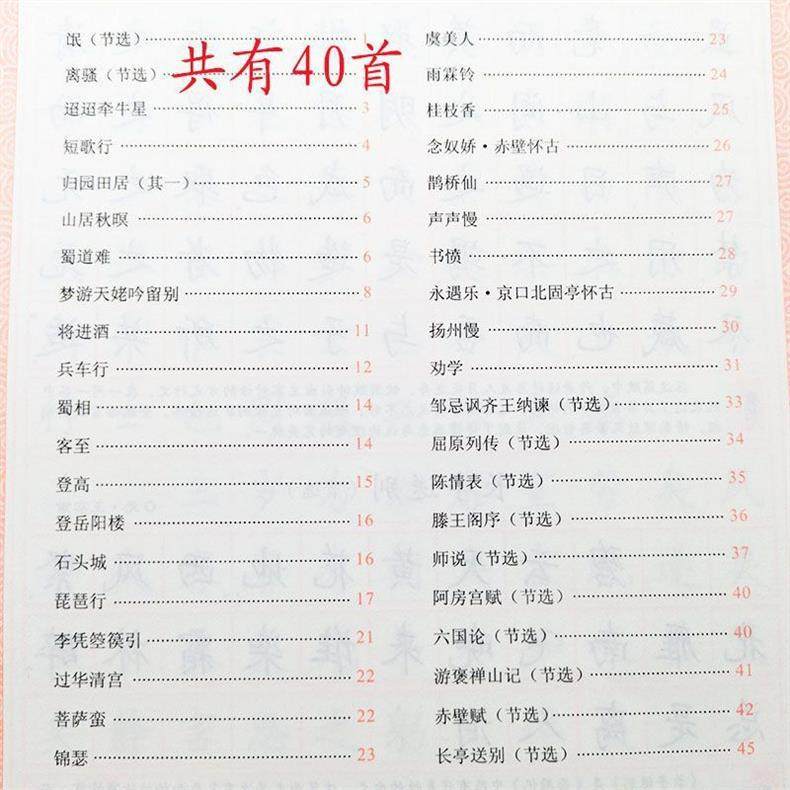 共有40首
氓（节选） 1
离骚（节选）
迢迢牵牛星 3
短歌行 4
归园田居（其一） 5
山居秋暝 6
蜀道难 6
梦游天姥吟留别 8
将进酒 11
兵车行 12
蜀相 14
客至 14
登高 15
登岳阳楼 16
石头城 16
琵琶行 17
李凭箜篌引 21
过华清宫 22
菩萨蛮 22
锦瑟 23
虞美人 23
雨霖铃 24
桂枝香 25
念奴娇·赤壁怀古 26
鹊桥仙 27
声声慢 27
书愤 28
永遇乐·京口北固亭怀古 29
扬州慢 30
劝学 31
邹忌讽齐王纳谏（节选） 33
屈原列传（节选） 34
陈情表（节选） 35
滕王阁序（节选） 36
师说（节选） 37
阿房宫赋（节选） 40
六国论（节选） 40
游褒禅山记（节选） 41
赤壁赋（节选） 42
长亭送别（节选） 45